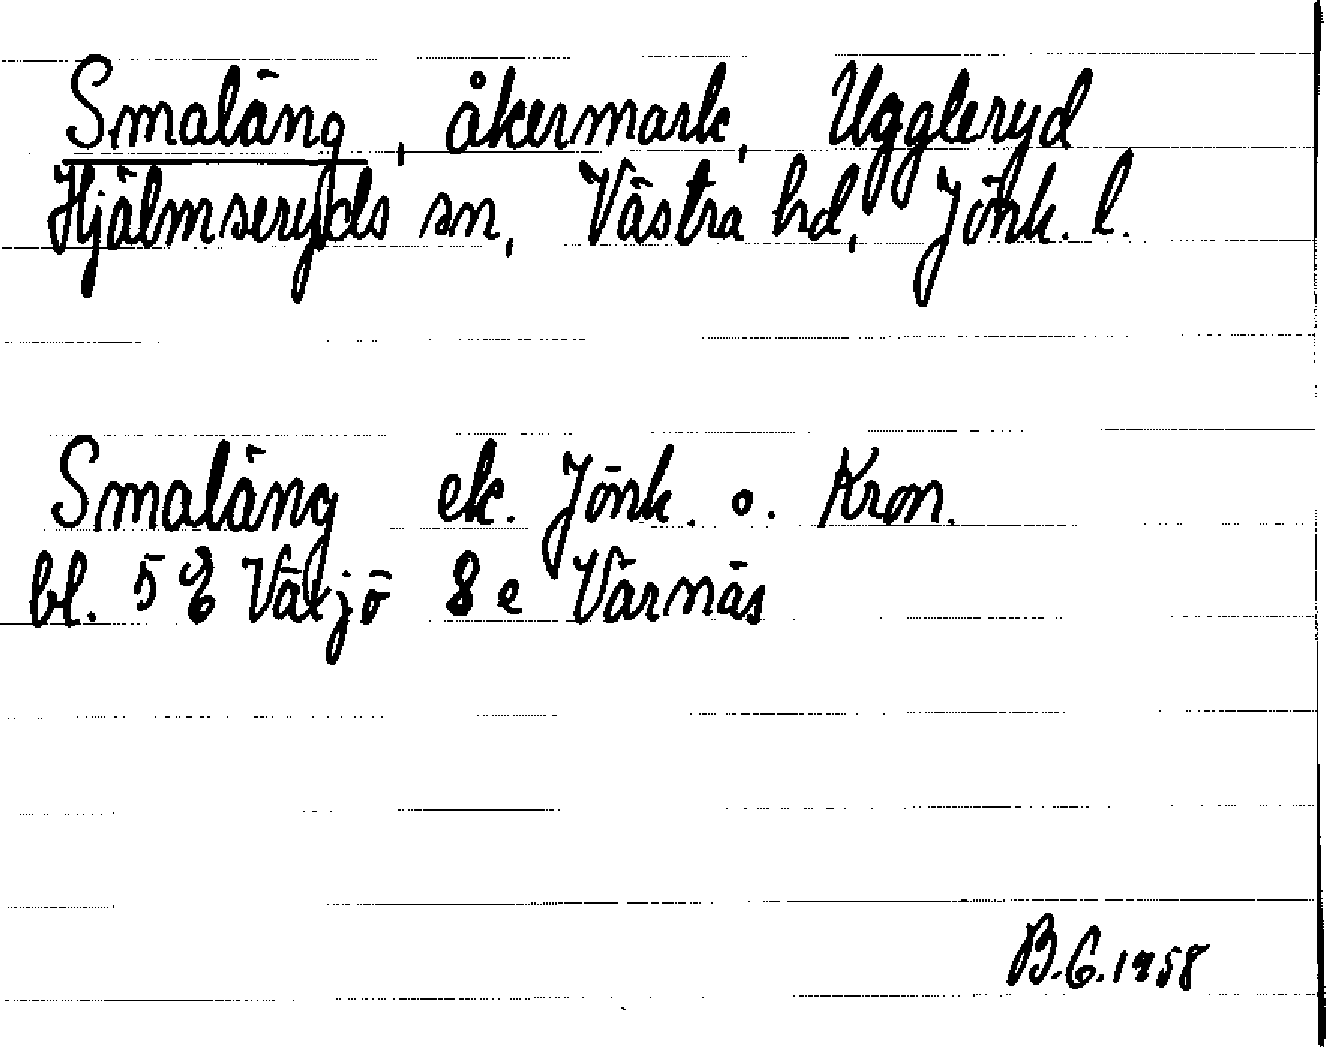 Smaläng, åkermark, Uggleryd
Hjälmseryds sn, Västra hd, Jönk. l.
Smaläng ek. Jönk. o. Kron.
bl. 5 E Växjö 8 e Värnäs
B.G. 1958